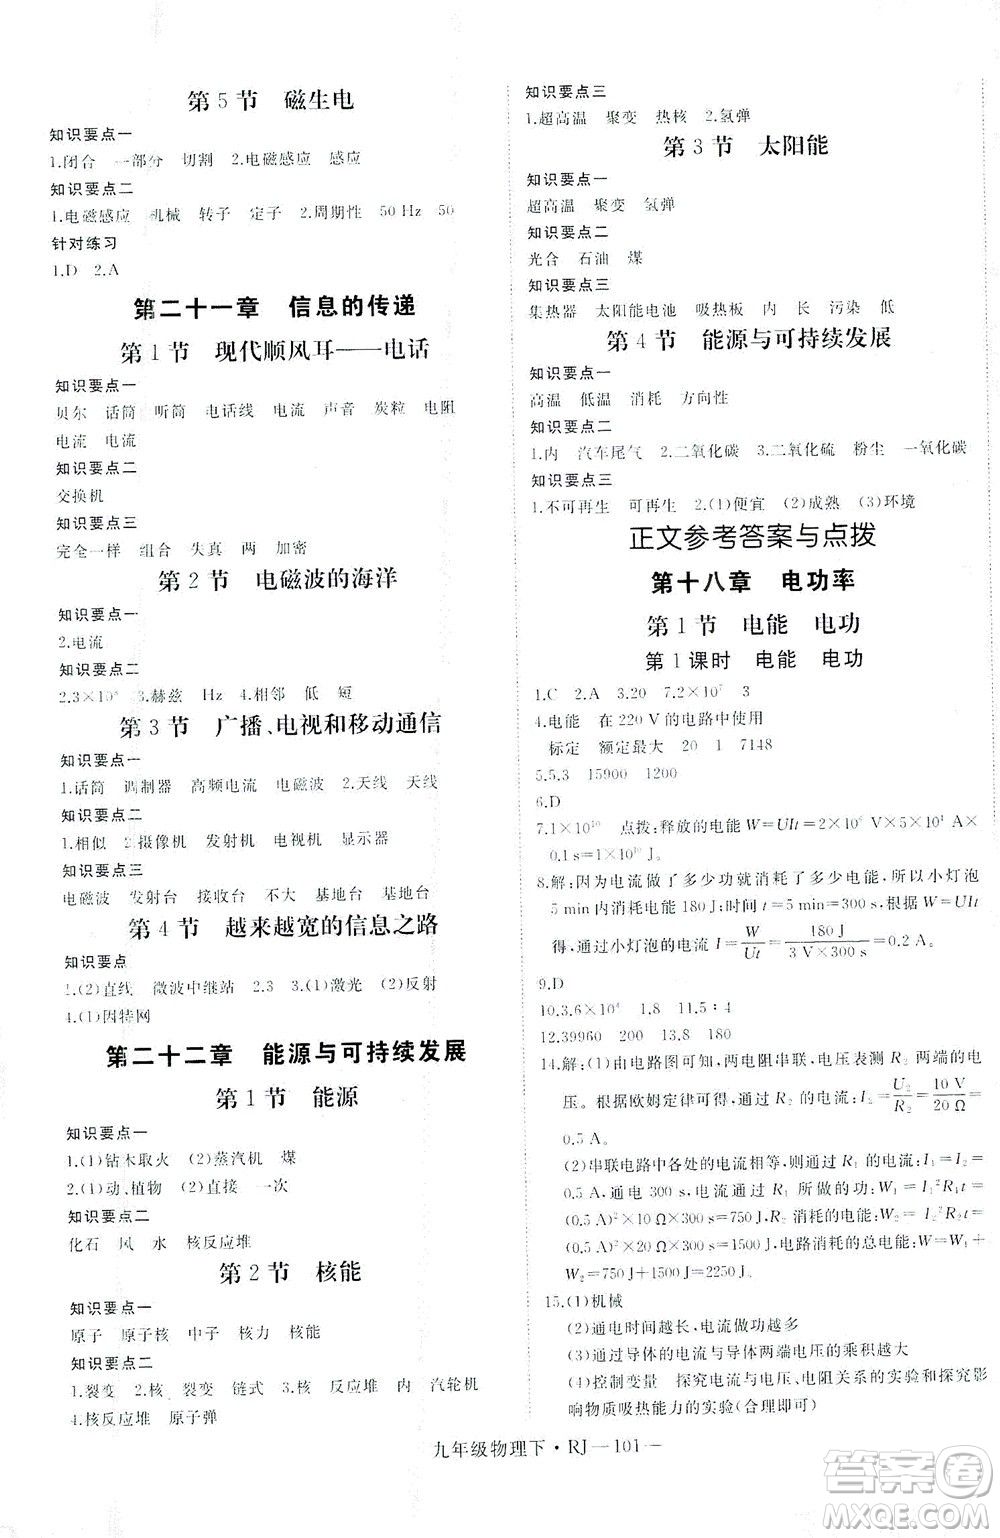 第5节 磁生电
知识要点一
1.闭合 一部分 切割 2.电磁感应 感应
知识要点二
1.电磁感应 机械 转子 定子 2.周期性 50 Hz 50
针对练习
1.D 2.A
第二十一章 信息的传递
第1节 现代顺风耳——电话
知识要点一
贝尔 话筒 听筒 电话线 电流 声音 炭粒 电阻
电流 电流
知识要点二
交换机
知识要点三
完全一样 组合 失真 两 加密
第2节 电磁波的海洋
知识要点一
2.电流
知识要点二
2.3×10⁸ 3.赫兹 Hz 4.相邻 低 短
第3节 广播、电视和移动通信
知识要点一
1.话筒 调制器 高频电流 电磁波 2.天线 天线
知识要点二
1.相似 2.摄像机 发射机 电视机 显示器
知识要点三
电磁波 发射台 接收台 不大 基地台 基地台
第4节 越来越宽的信息之路
知识要点
1.(2)直线 微波中继站 2.3 3.(1)激光 (2)反射
4.(1)因特网
第二十二章 能源与可持续发展
第1节 能源
知识要点一
1.(1)钻木取火 (2)蒸汽机 煤
2.(1)动、植物 (2)直接 一次
知识要点二
化石 风 水 核反应堆
第2节 核能
知识要点一
原子 原子核 中子 核力 核能
知识要点二
1.裂变 2.核 裂变 链式 3.核反应堆 内 汽轮机
4.核反应堆 原子弹
知识要点三
1.超高温 聚变 热核 2.氢弹
第3节 太阳能
知识要点一
超高温 聚变 氢弹
知识要点二
光合 石油 煤
知识要点三
集热器 太阳能电池 吸热板 内 长 污染 低
第4节 能源与可持续发展
知识要点一
高温 低温 消耗 方向性
知识要点二
1.内 汽车尾气 2.二氧化碳 3.二氧化硫 粉尘 一氧化碳
知识要点三
1.不可再生 可再生 2.(1)便宜 (2)成熟 (3)环境
正文参考答案与点拨
第十八章 电功率
第1节 电能 电功
第1课时 电能 电功
1.C 2.A 3.20 7.2×10⁷ 3
4.电能 在220 V的电路中使用
标定 额定最大 20 1 7148
5.5.3 15900 1200
6.D
7.1×10¹⁰ 点拨:释放的电能W=UIt=2×10⁶ V×5×10⁴ A×
0.1 s=1×10¹⁰ J。
8.解:因为电流做了多少功就消耗了多少电能,所以小灯泡
5 min内消耗电能180 J;时间t=5 min=300 s,由W=UIt
得,通过小灯泡的电流I=W/Ut=180 J/3 V×300 s=0.2 A。
9.D
10.3.6×10⁴ 1.8 11.5∶4
12.39960 200 13.8 180
14.解:(1)由电路图可知,两电阻串联,电压表测R₂两端的电
压。根据欧姆定律可得,通过R₂的电流:I₂=U₂/R₂=10 V/20 Ω=
0.5 A。
(2)串联电路中各处的电流相等,则通过R₁的电流:I₁=I₂=
0.5 A,通电300 s,电流通过R₁所做的功:W₁=I₁²R₁t=
(0.5 A)²×10 Ω×300 s=750 J,R₂消耗的电能:W₂=I₂²R₂t=
(0.5 A)²×20 Ω×300 s=1500 J,电路消耗的总电能:W=W₁+
W₂=750 J+1500 J=2250 J。
15.(1)机械
(2)通电时间越长,电流做功越多
(3)通过导体的电流与导体两端电压的乘积越大
(4)控制变量 探究电流与电压、电阻关系的实验和探究影
响物质吸热能力的实验(合理即可)
九年级物理下·RJ—101—
答案圈
MXQE.COM